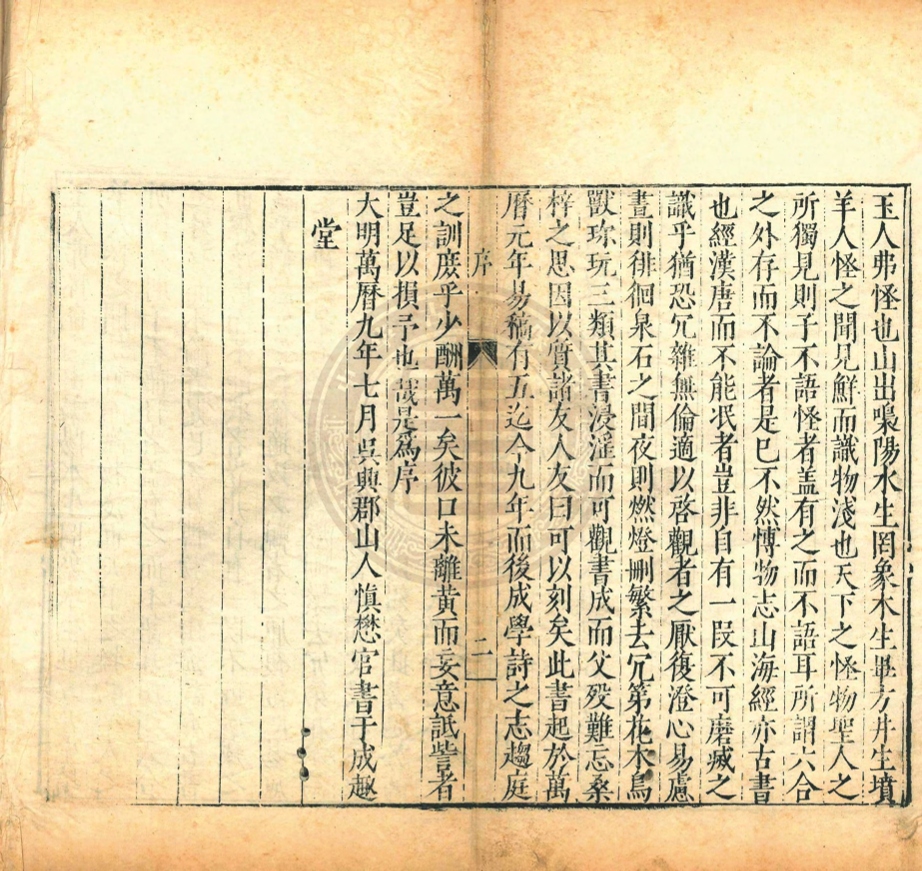 玉人弗怪也山出嘄陽水生罔象木生畢方井生墳
羊人怪之聞見鮮而識物淺也天下之怪物聖人之
所獨見則子不語怪者盖有之而不語耳所謂六合
之外存而不論者是巳不然愽物志山海經亦古書
也經漢唐而不能泯者豈非自有一叚不可磨滅之
識乎猶恐冗雜無倫適以啓觀者之厭復澄心易慮
晝則徘徊泉石之間夜則燃燈刪繁去冗第花木鳥
獸珎玩三類其書浸滛而可觀書成而父殁難忘桑
梓之思因以質諸友人友曰可以刻矣此書起於萬
曆元年易稿有五迄今九年而後成學詩之志趨庭
序
二
之訓庻乎少酬萬一矣彼口未離黄而妄意詆訾者
豈足以損予也哉是爲序
大明萬曆九年七月吳興郡山人愼懋官書于成趣
堂